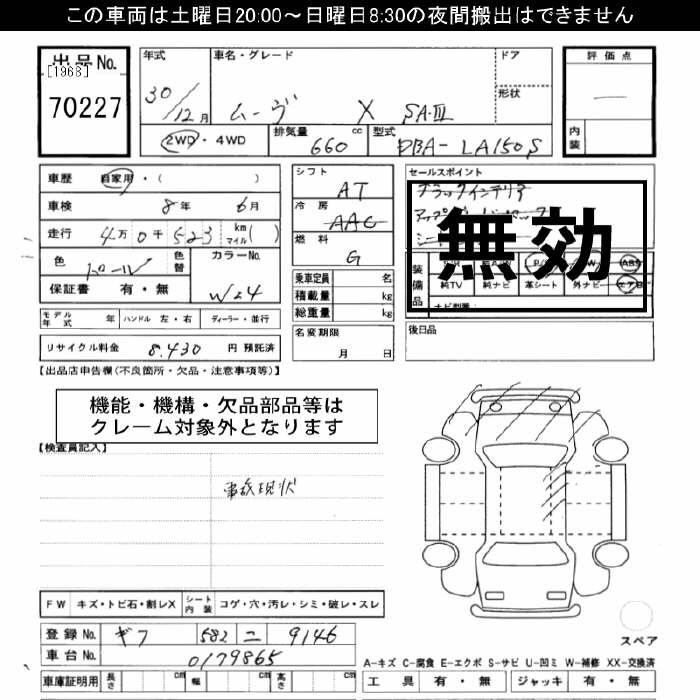 この車両は土曜日20:00～日曜日8:30の夜間搬出はできません
出品No.
[1968]
70227
年式
30/12月
車名・グレード
ムーヴ X SAⅢ
ドア
形状
評価点
内装
2WD・4WD
排気量 660 cc
型式 DBA-LA150S
車歴 自家用・( )
車検 8年 6月
走行 4万0千523 km マイル( )
色 パール 色替
カラーNo. W24
保証書 有・無
シフト AT
冷房 AAC
燃料 G
乗車定員 名
積載量 kg
総重量 kg
セールスポイント
ブラックインテリア
無効
装備品
純TV 純ナビ 革シート 外ナビ エアB
ABS
ナビ型番:
モデル年式 年 ハンドル 左・右 ディーラー・並行
名変期限 月 日
後日品
リサイクル料金 8.430 円 預託済
【出品店申告欄(不良箇所・欠品・注意事項等)】
機能・機構・欠品部品等は
クレーム対象外となります
【検査員記入】
事故現状
FW キズ・トビ石・割レX シート内装 コゲ・穴・汚レ・シミ・破レ・スレ
スペア
登録No. ギフ 582 ニ 9146
車台No. 0179865
A-キズ C-腐食 E-エクボ S-サビ U-凹ミ W-補修 XX-交換済
車庫証明用 長さ cm 幅 cm 高さ cm
工具 有・無 ジャッキ 有・無